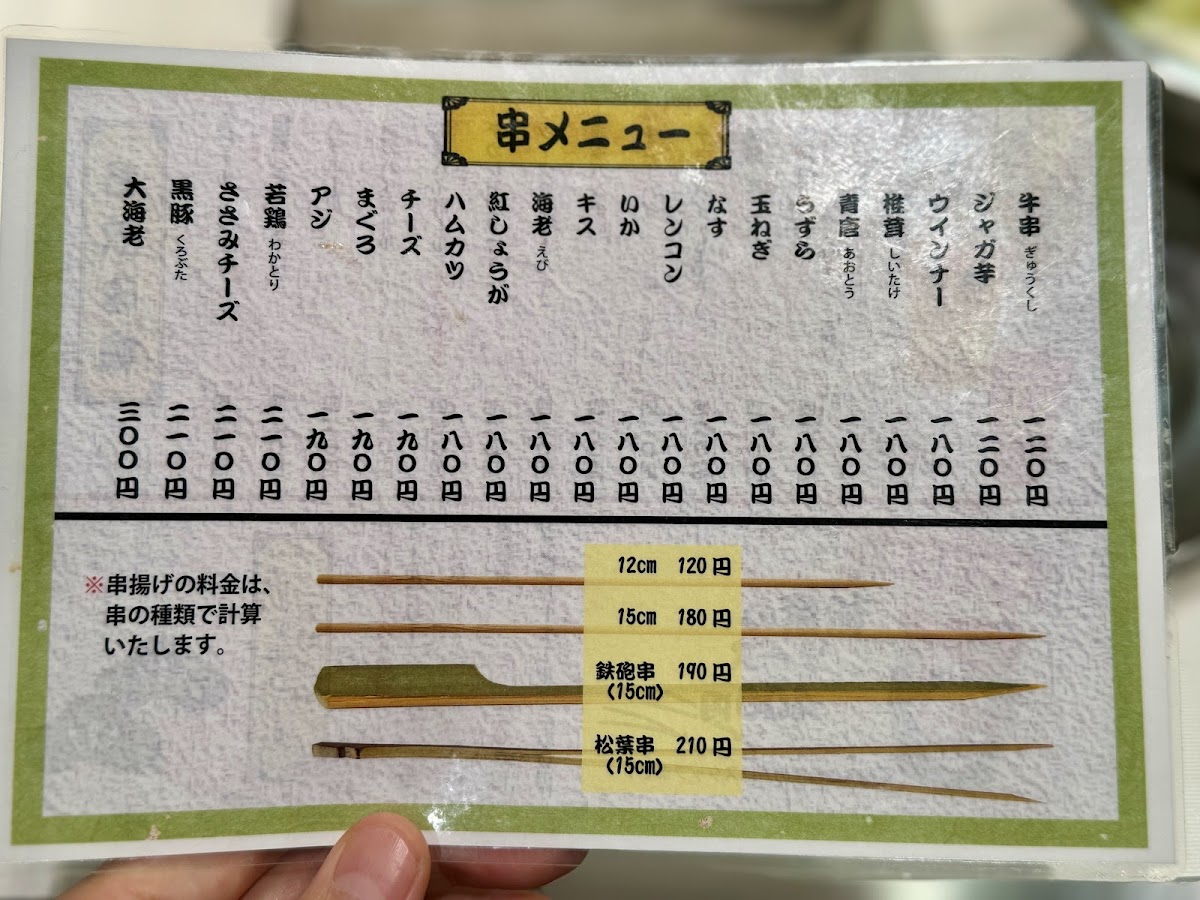 串メニュー
牛串 ぎゅうくし 一二〇円
ジャガ芋 一二〇円
ウインナー 一八〇円
椎茸 しいたけ 一八〇円
青唐 あおとう 一八〇円
うずら 一八〇円
玉ねぎ 一八〇円
なす 一八〇円
レンコン 一八〇円
いか 一八〇円
キス 一八〇円
海老 えび 一八〇円
紅しょうが 一八〇円
ハムカツ 一八〇円
チーズ 一九〇円
まぐろ 一九〇円
アジ 一九〇円
若鶏 わかとり 二一〇円
ささみチーズ 二一〇円
黒豚 くろぶた 二一〇円
大海老 三〇〇円
※串揚げの料金は、
串の種類で計算
いたします。
12cm 120円
15cm 180円
鉄砲串 190円
(15cm)
松葉串 210円
(15cm)